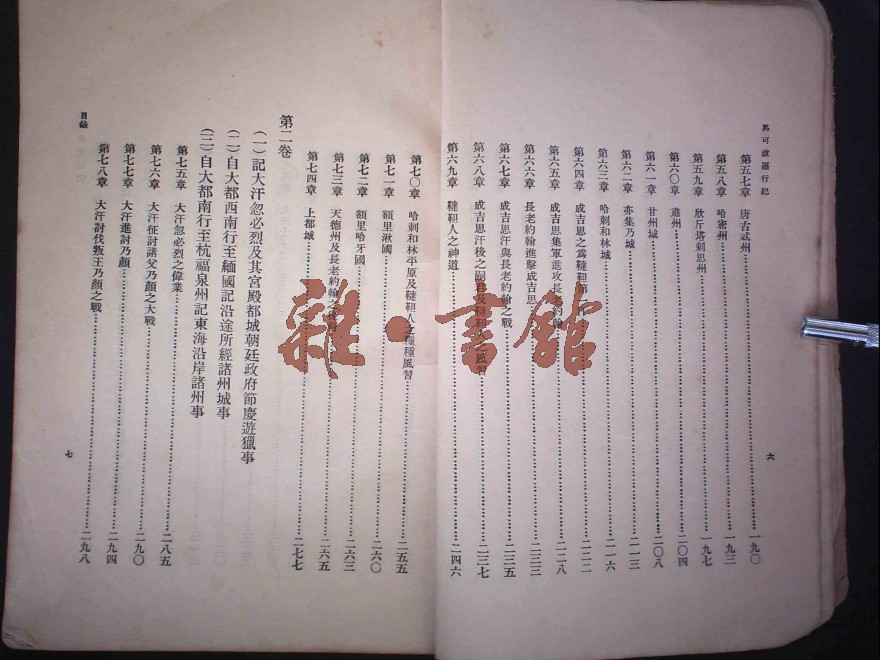 馬可波羅行紀
第五七章 唐古忒州……一九〇
第五八章 哈密州……一九三
第五九章 欣斤塔剌思州……一九七
第六〇章 肅州……二〇四
第六一章 甘州城……二〇八
第六二章 亦集乃城……二一三
第六三章 哈剌和林城……二一六
第六四章 成吉思之爲韃靼第一汗……二二二
第六五章 成吉思集軍進攻長老約翰……二二八
第六六章 長老約翰進擊成吉思……二三三
第六七章 成吉思汗與長老約翰之戰……二三五
第六八章 成吉思汗後之嗣君及韃靼人之風習……二三七
第六九章 韃靼人之神道……二四六
六
第七〇章 哈剌和林平原及韃靼人之種種風習……二五五
第七一章 額里湫國……二六〇
第七二章 額里哈牙國……二六三
第七三章 天德州及長老約翰之後裔……二六五
第七四章 上都城……二七七
第二卷
(一)記大汗忽必烈及其宮殿都城朝廷政府節慶遊獵事
(二)自大都西南行至緬國記沿途所經諸州城事
(三)自大都南行至杭福泉州記東海沿岸諸州事
第七五章 大汗忽必烈之偉業……二八五
第七六章 大汗征討諸父乃顏之大戰……二九〇
第七七章 大汗進討乃顏……二九四
第七八章 大汗討伐叛王乃顏之戰……二九八
目錄
七
雜·書館